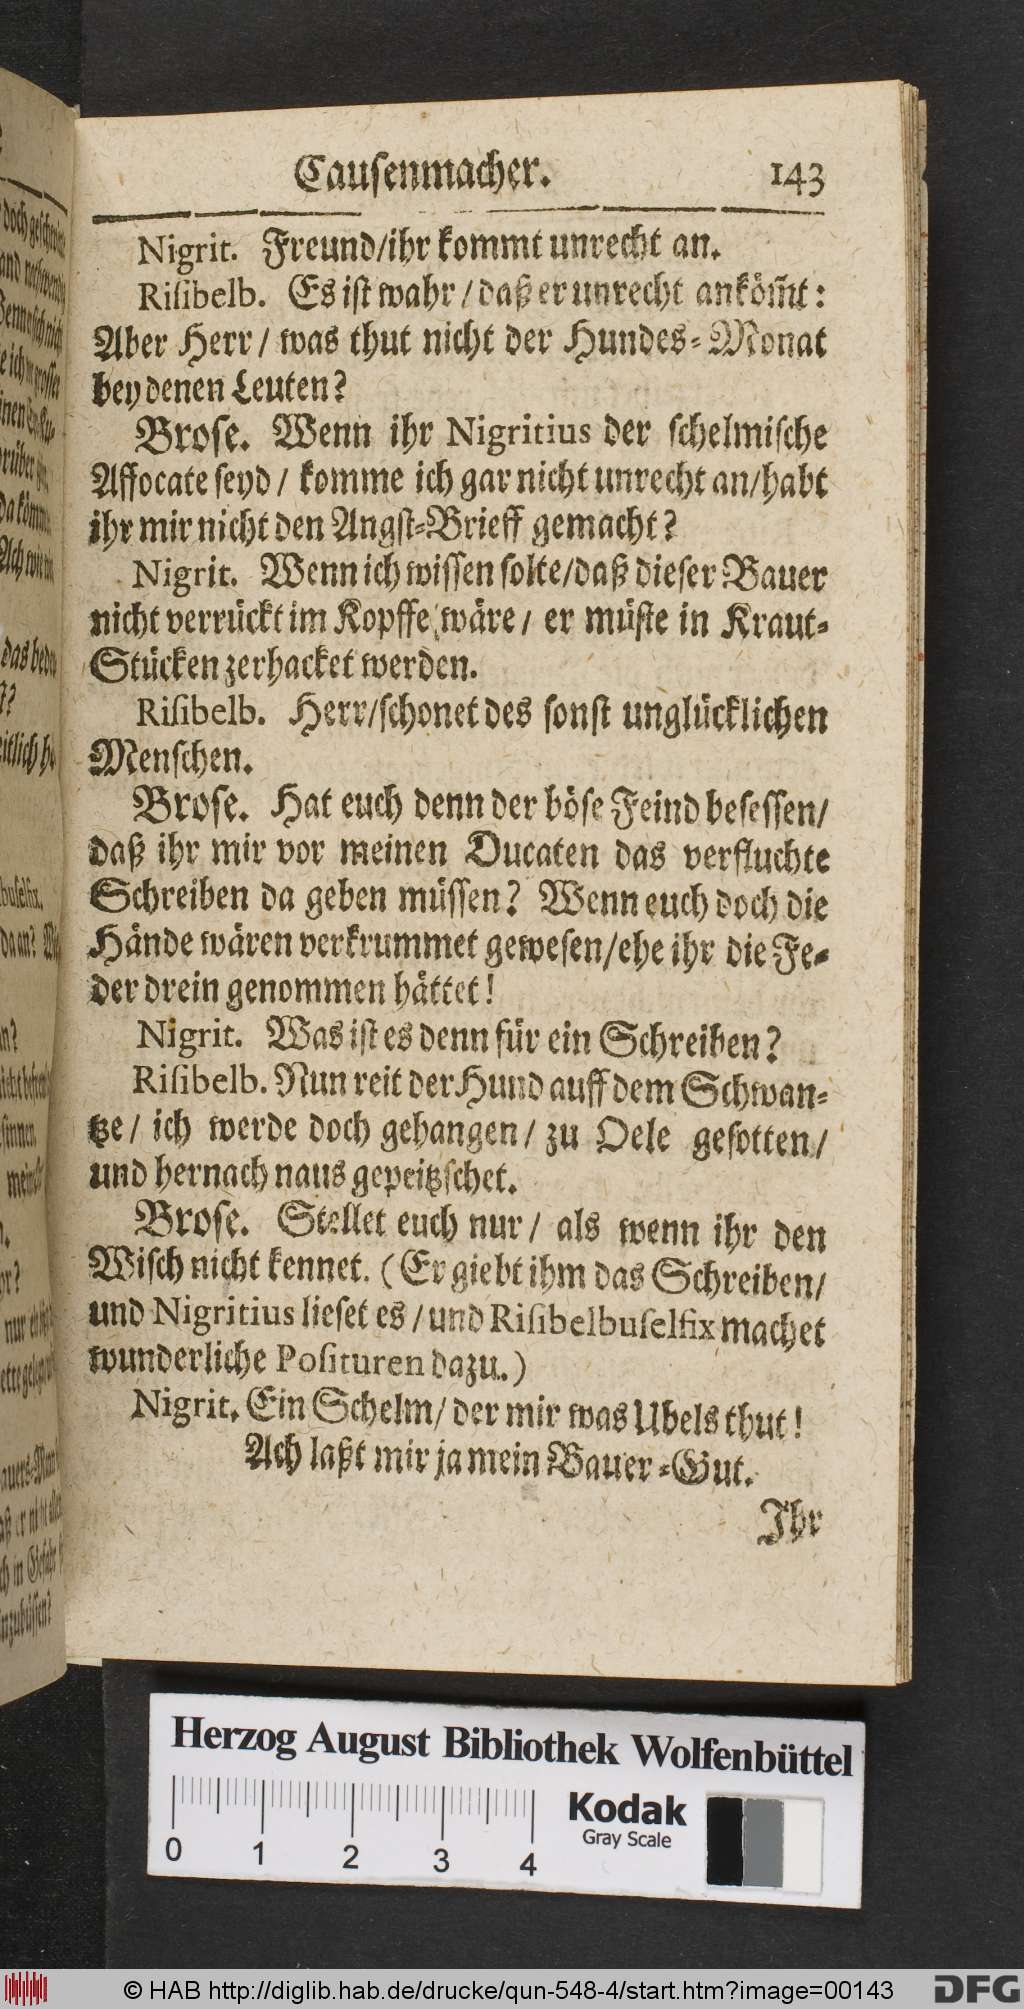 Causenmacher. 143
Nigrit. Freund/ihr kommt unrecht an.
Riſibelb. Es iſt wahr / daß er unrecht anköm̃t:
Aber Herr / was thut nicht der Hundes-Monat
bey denen Leuten?
Broſe. Wenn ihr Nigritius der ſchelmiſche
Affocate ſeyd / komme ich gar nicht unrecht an/habt
ihr mir nicht den Angſt-Brieff gemacht?
Nigrit. Wenn ich wiſſen ſolte/daß dieſer Bauer
nicht verrückt im Kopffe wäre / er müſte in Kraut-
Stücken zerhacket werden.
Riſibelb. Herr/ſchonet des ſonſt unglücklichen
Menſchen.
Broſe. Hat euch denn der böſe Feind beſeſſen/
daß ihr mir vor meinen Ducaten das verfluchte
Schreiben da geben müſſen? Wenn euch doch die
Hände wären verkrummet geweſen/ehe ihr die Fe-
der drein genommen hättet!
Nigrit. Was iſt es denn für ein Schreiben?
Riſibelb. Nun reit der Hund auff dem Schwan-
tze / ich werde doch gehangen / zu Oele geſotten/
und hernach naus gepeitzſchet.
Broſe. Stellet euch nur / als wenn ihr den
Wiſch nicht kennet. (Er giebt ihm das Schreiben/
und Nigritius lieſet es / und Riſibelbuſelfix machet
wunderliche Poſituren dazu.)
Nigrit. Ein Schelm/ der mir was Ubels thut!
Ach laßt mir ja mein Bauer-Gut.
Ihr
Herzog August Bibliothek Wolfenbüttel
Kodak
Gray Scale
0 1 2 3 4
© HAB http://diglib.hab.de/drucke/qun-548-4/start.htm?image=00143
DFG